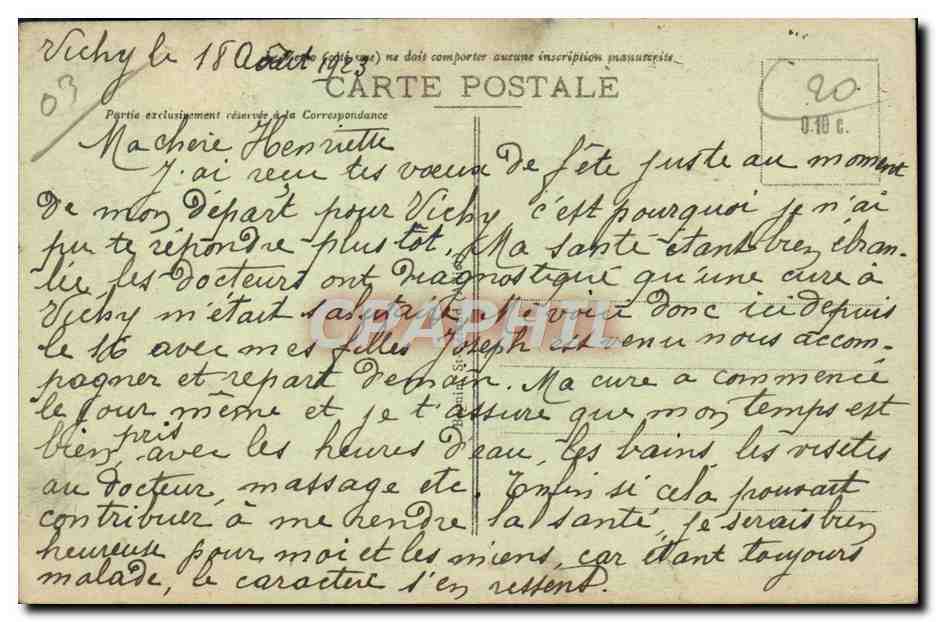 Vichy le 18 Août 1923
ne doit comporter aucune inscription manuscrite
CARTE POSTALE
03
20
0.10 c.
Partie exclusivement réservée à la Correspondance
Ma chère Henriette
J'ai reçu tes voeux de fête juste au moment
de mon départ pour Vichy, c'est pourquoi je n'ai
pu te répondre plus tôt. Ma santé étant bien ébran-
lée les docteurs ont diagnostiqué qu'une cure à
Vichy m'était salutaire. Me voici donc ici depuis
le 16 avec mes filles Joseph est venu nous accom-
pagner et repart demain. Ma cure a commencé
le jour même et je t'assure que mon temps est
bien pris avec les heures d'eau, les bains les visites
au docteur, massage etc. Enfin si cela pouvait
contribuer à me rendre la santé, je serais bien
heureuse pour moi et les miens, car étant toujours
malade, le caractère s'en ressent.
CPAPHIL